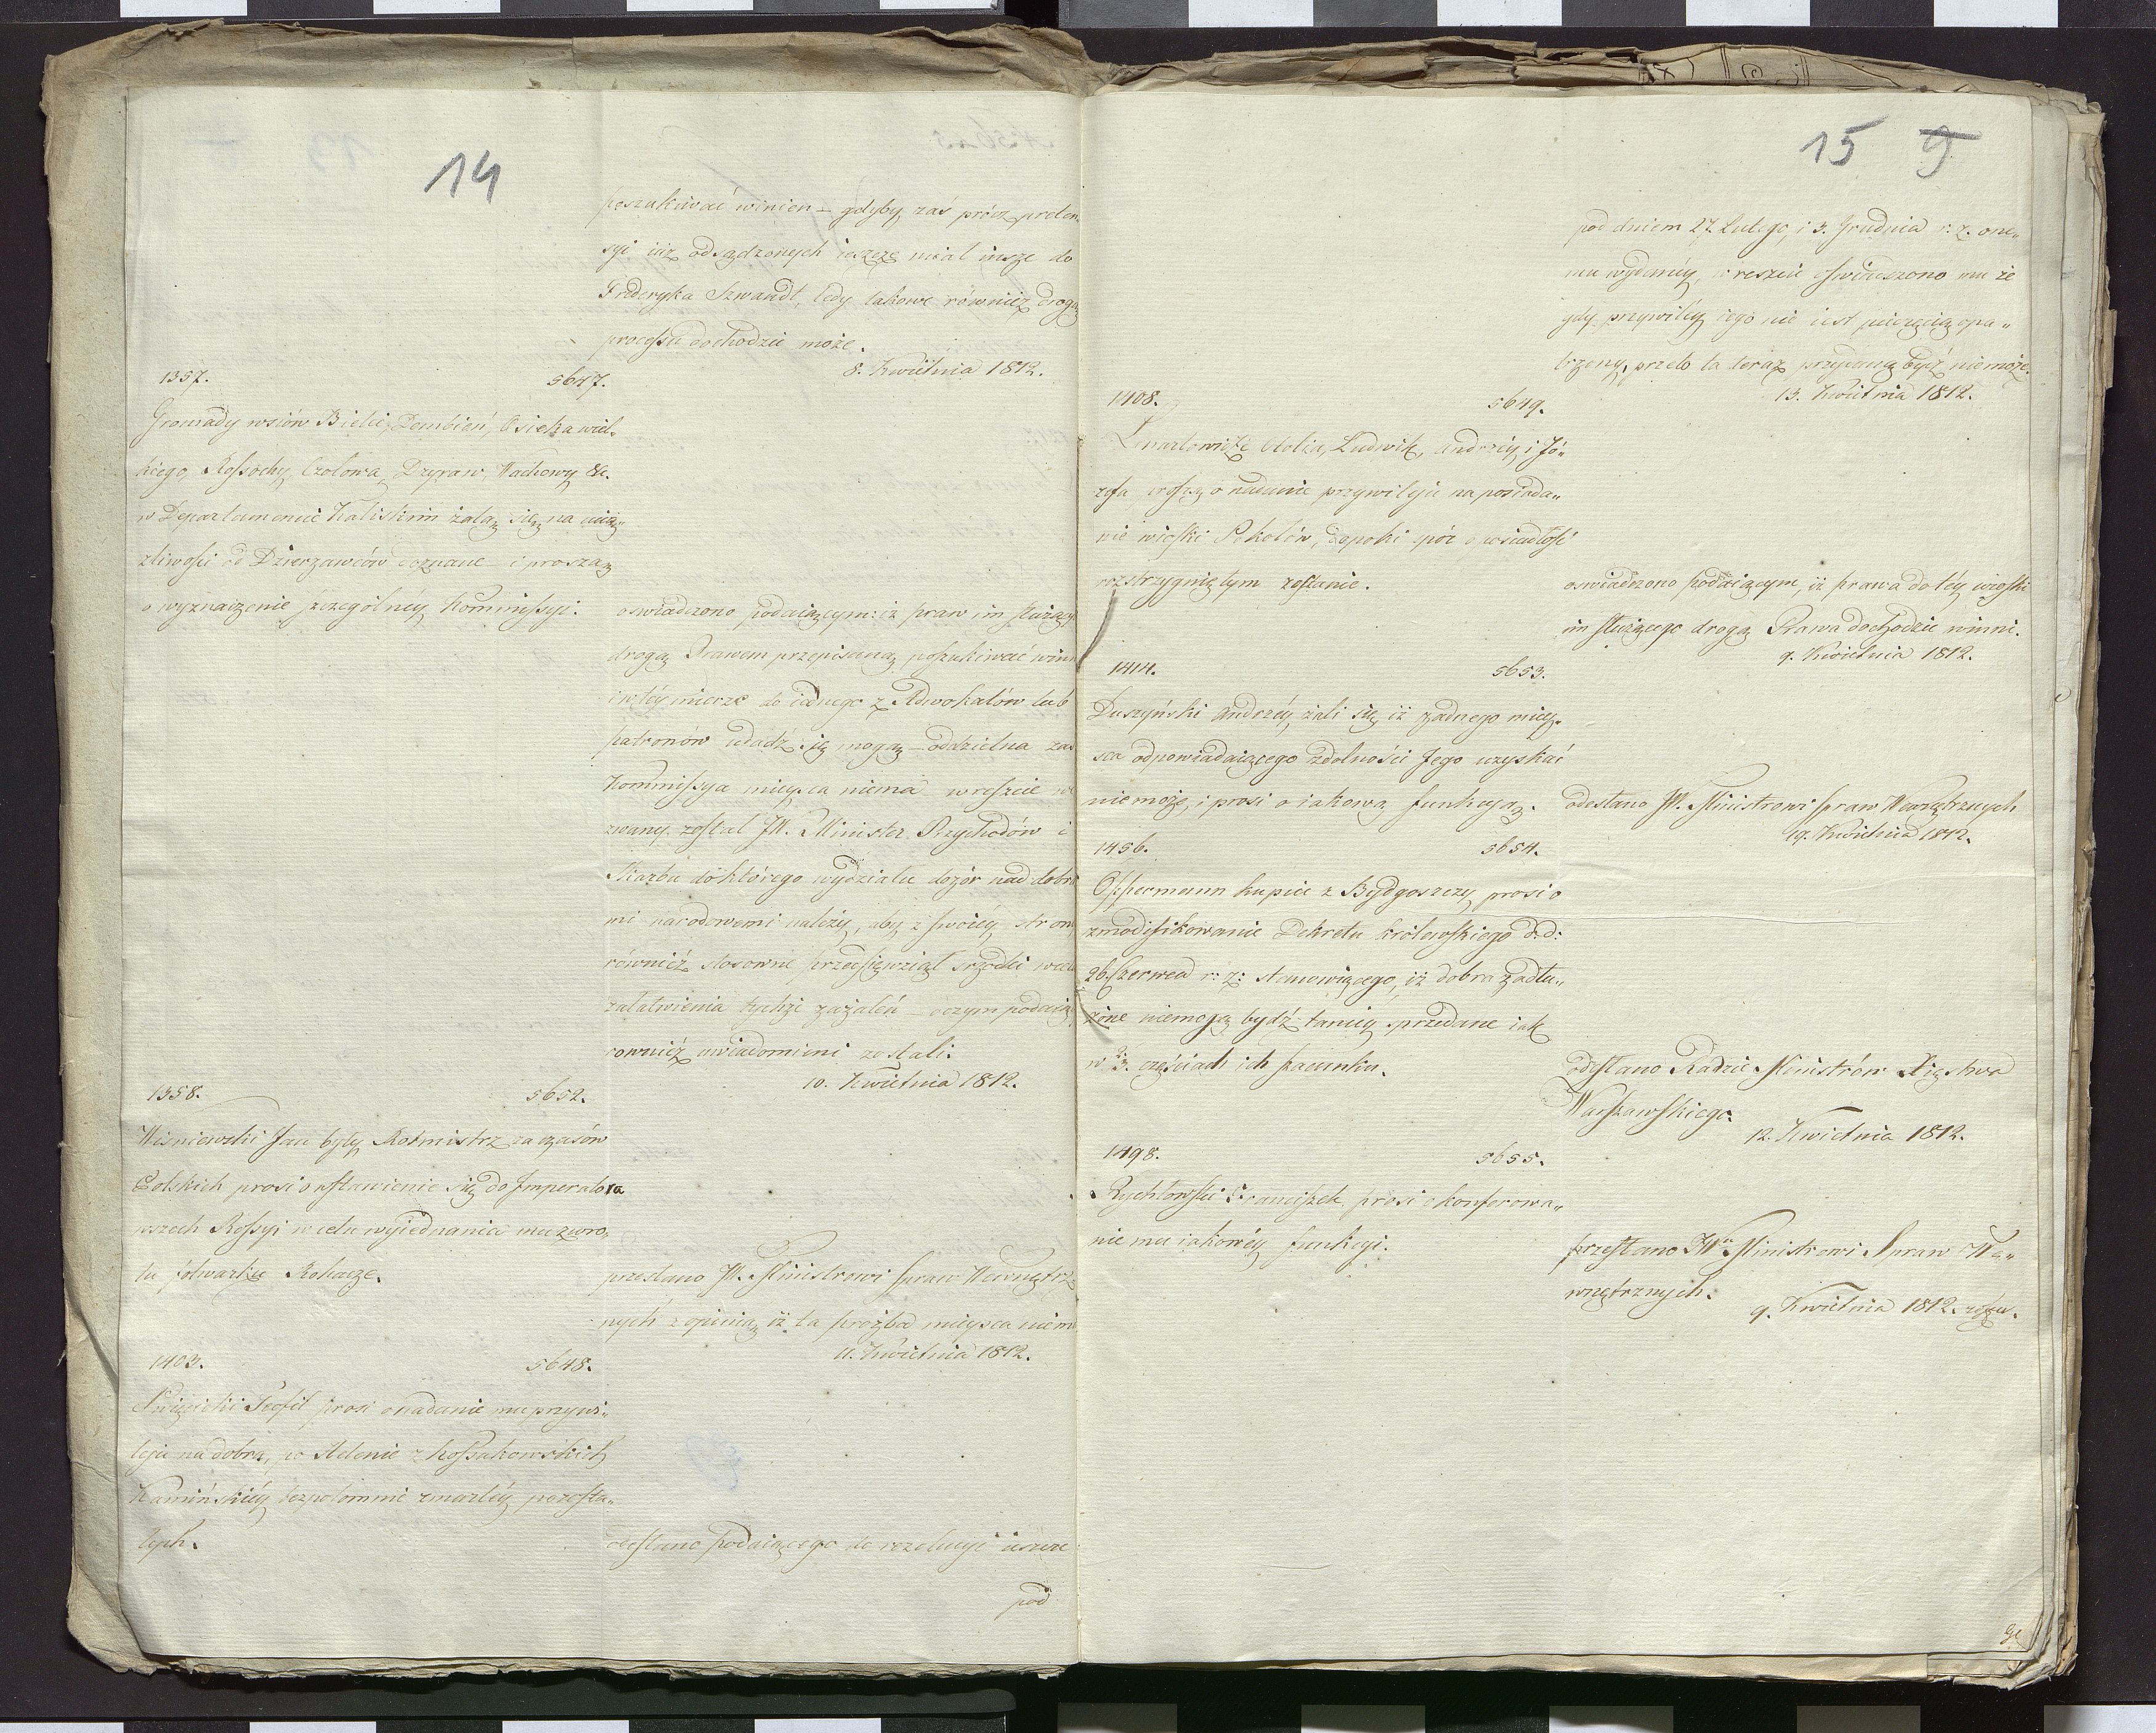 14
poszukiwać winien – gdyby zaś prócz preten„
syi iuż odsądzonych ieszcze miał insze do
Frideryka Szwandt, tedy takowe również drogą
processu dochodzić może.
8. Kwietnia 1812.
1357. 5647.
Gromady wsiów Bielic, Dembień, Osieka wiel„
kiego, Rossochy, Czołowa, Dzpraw, Wachowy &c.
w Departamencie Kaliskim żalą się na uciąż„
żliwości od Dzierzawców doznane – i proszą
o wyznaczenie szczególnéy Kommissyi.
oswiadczono podaiącym: iż praw im służący
drogą Prawem przepisaną poszukiwać winn
i w téy mierze do iednego z Adwokatów lub
patronów udadź się mogą – oddzielna zas
Kommissya mieysca niema – wreszcie we
zwany został JW. Minister Przychodów i
Skarbu do którego wydziału dozór nad dobra
mi narodowemi należy, aby z swoiéy stron
również stosowne przedsięwziął srzodki wcelu
załatwienia tychże zażaleń – oczym podaiąc
rownież uwiadomieni zostali.
10. Kwietnia 1812.
1358. 5652.
Wisniewski Jan były Rotmistrz za czasów
Polskich prosi o wstawienie się do Imperatora
wszech Rossyi w celu wyiednania mu zwro„
tu folwarku Rohacze.
przesłano JW. Ministrowi Spraw Wewnętrz
nych z opinią iż ta prożba mieysca niem
11. Kwietnia 1812.
1403. 5648.
Swięcicki Teofil prosi o nadanie mu przywi„
leju na dobra, po Helenie z Kossakowskich
Kamińskiéy bezpotomnie zmarłéy pozosta„
łych.
odesłano podaiącego do rezolucyi ieszcze
pod
15 9
pod dniem 27. Lutego, i 3. Grudnia r: z. one„
mu wydanéy, w reszcie oswiadczono mu że
gdy przywiléy iego nie iest pieczęcią opa„
trzony, przeto ta teraz przydaną bydź niemoże.
13. Kwietnia 1812.
1408. 5649.
Lenartowicze Adolia, Ludwik, Andrzéy i Jó„
zefa proszą o nadanie przywileju na posiada„
nie wioski Sokołów, dopoki spór o posiadłość
rozstrzygniętym zostanie.
oswiadczono podaiącym, iż prawa do téy wioski
im służącego drogą Prawa dochodzić winni.
9. Kwietnia 1812.
1414. 5653.
Duszyński Andrzéy żali się iż żadnego miey„
sca odpowiadaiącego zdolności Jego uzyskać
niemoże, i prosi o iakową funkcyą.
odesłano JW. Ministrowi Spraw Wewnętrznych
19. Kwietnia 1812.
1456. 5654.
Offermann kupiec z Bydgoszczy prosi o
zmodifikowanie Dekretu królewskiego d: d:
26. Czerwca r: z: stanowiącego, iż dobra zadłu„
żone niemogą bydź taniéy sprzedane iak
w 2/3. częściach ich szacunku.
odesłano Radzie Ministrów Xięstwa
Warszawskiego.
12. Kwietnia 1812.
1498. 5655.
Rychłowski Franciszek prosi o konferowa„
nie mu iakowéy funkcyi.
przesłano JWu Ministrowi Spraw We„
wnętrznych.
9. Kwietnia 1812. roku.